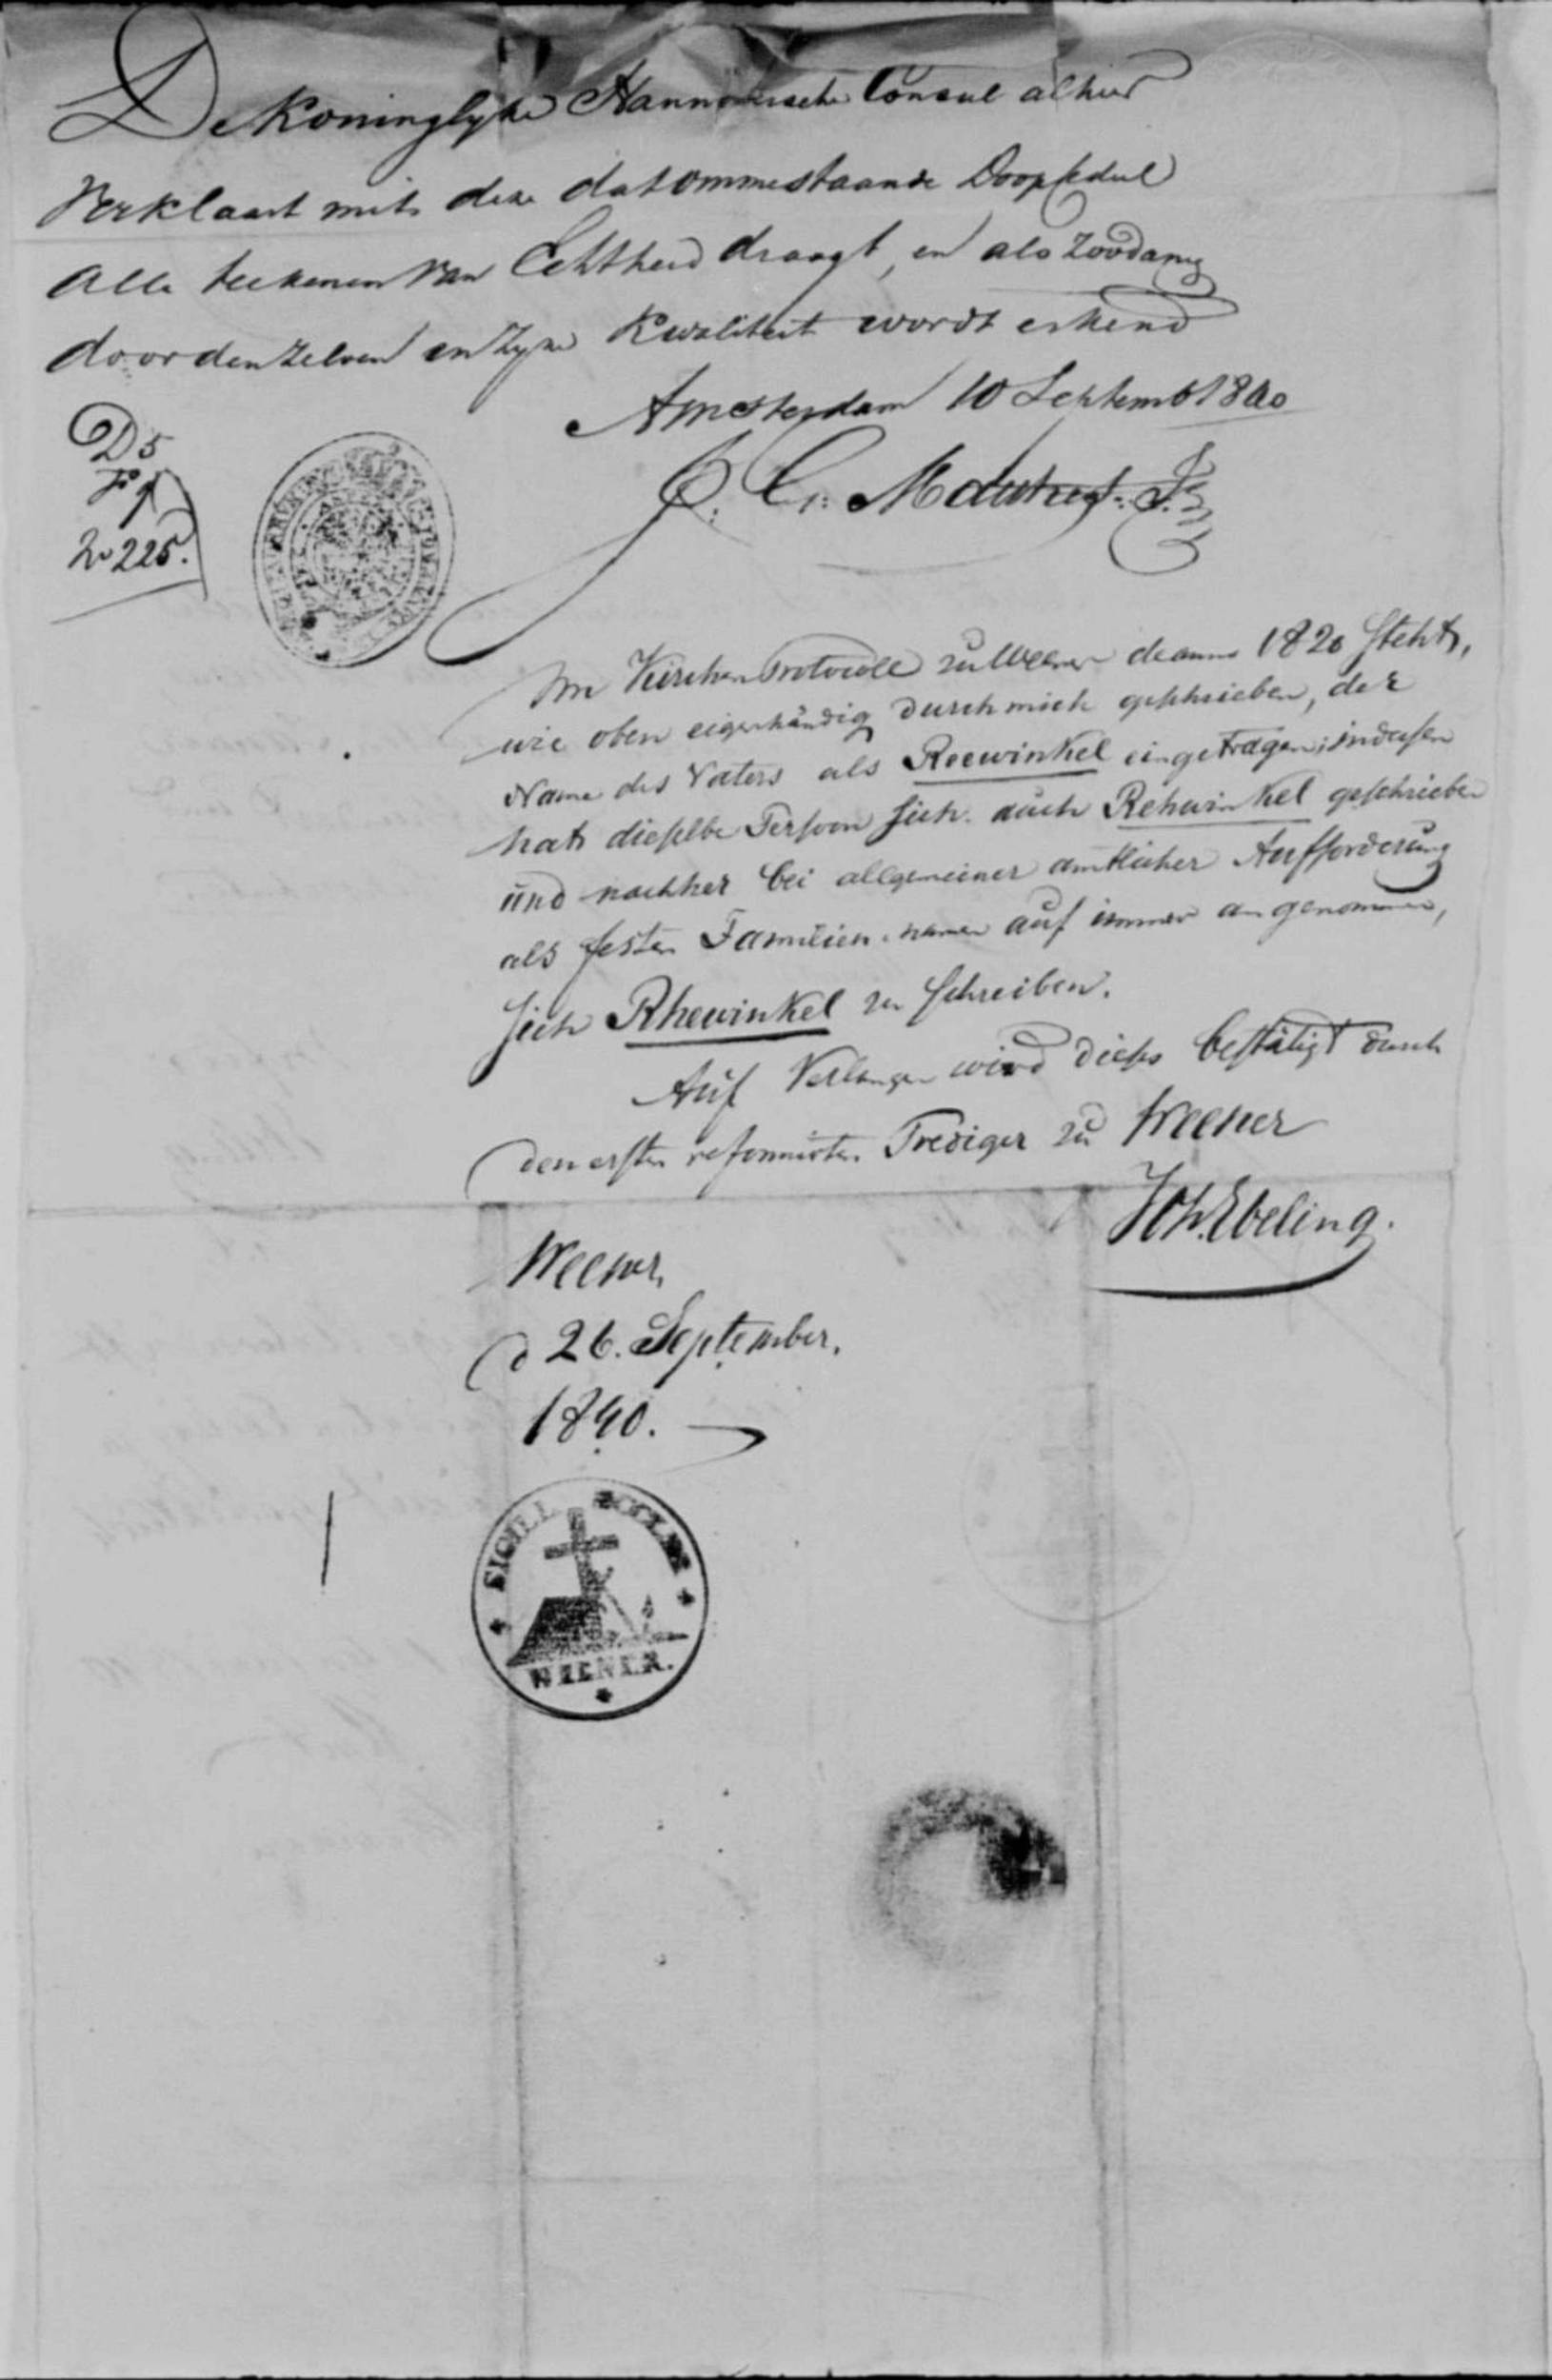 De Koninglyke Hannoversche Consul alhier
Verklaart mits deze dat ommestaande Doopsedul
alle teekenen van Echtheid draagt, en als zoodanig
door denzelven in zyne Kwaliteit wordt erkend
Amsterdam 10 Septemb 1840
D 5
F 1
No 225.
Im Kirchen Protocolle zu Weener de anno 1820 steht,
wie oben eigenhändig durch mich geschrieben, der
Name des Vaters als Reewinkel eingetragen; indessen
hat dieselbe Person sich auch Rehwinkel geschrieben
und nachher bei allgemeiner amtlicher Aufforderung
als festen Familien-namen auf immer angenommen,
sich Rhewinkel zu schreiben.
Auf Verlangen wird dieses bestätigt durch
den ersten reformirten Prediger zu Weener
Ebeling.
Weener,
d 26. September,
1840.
SIGILL ECCLES
WEENER.